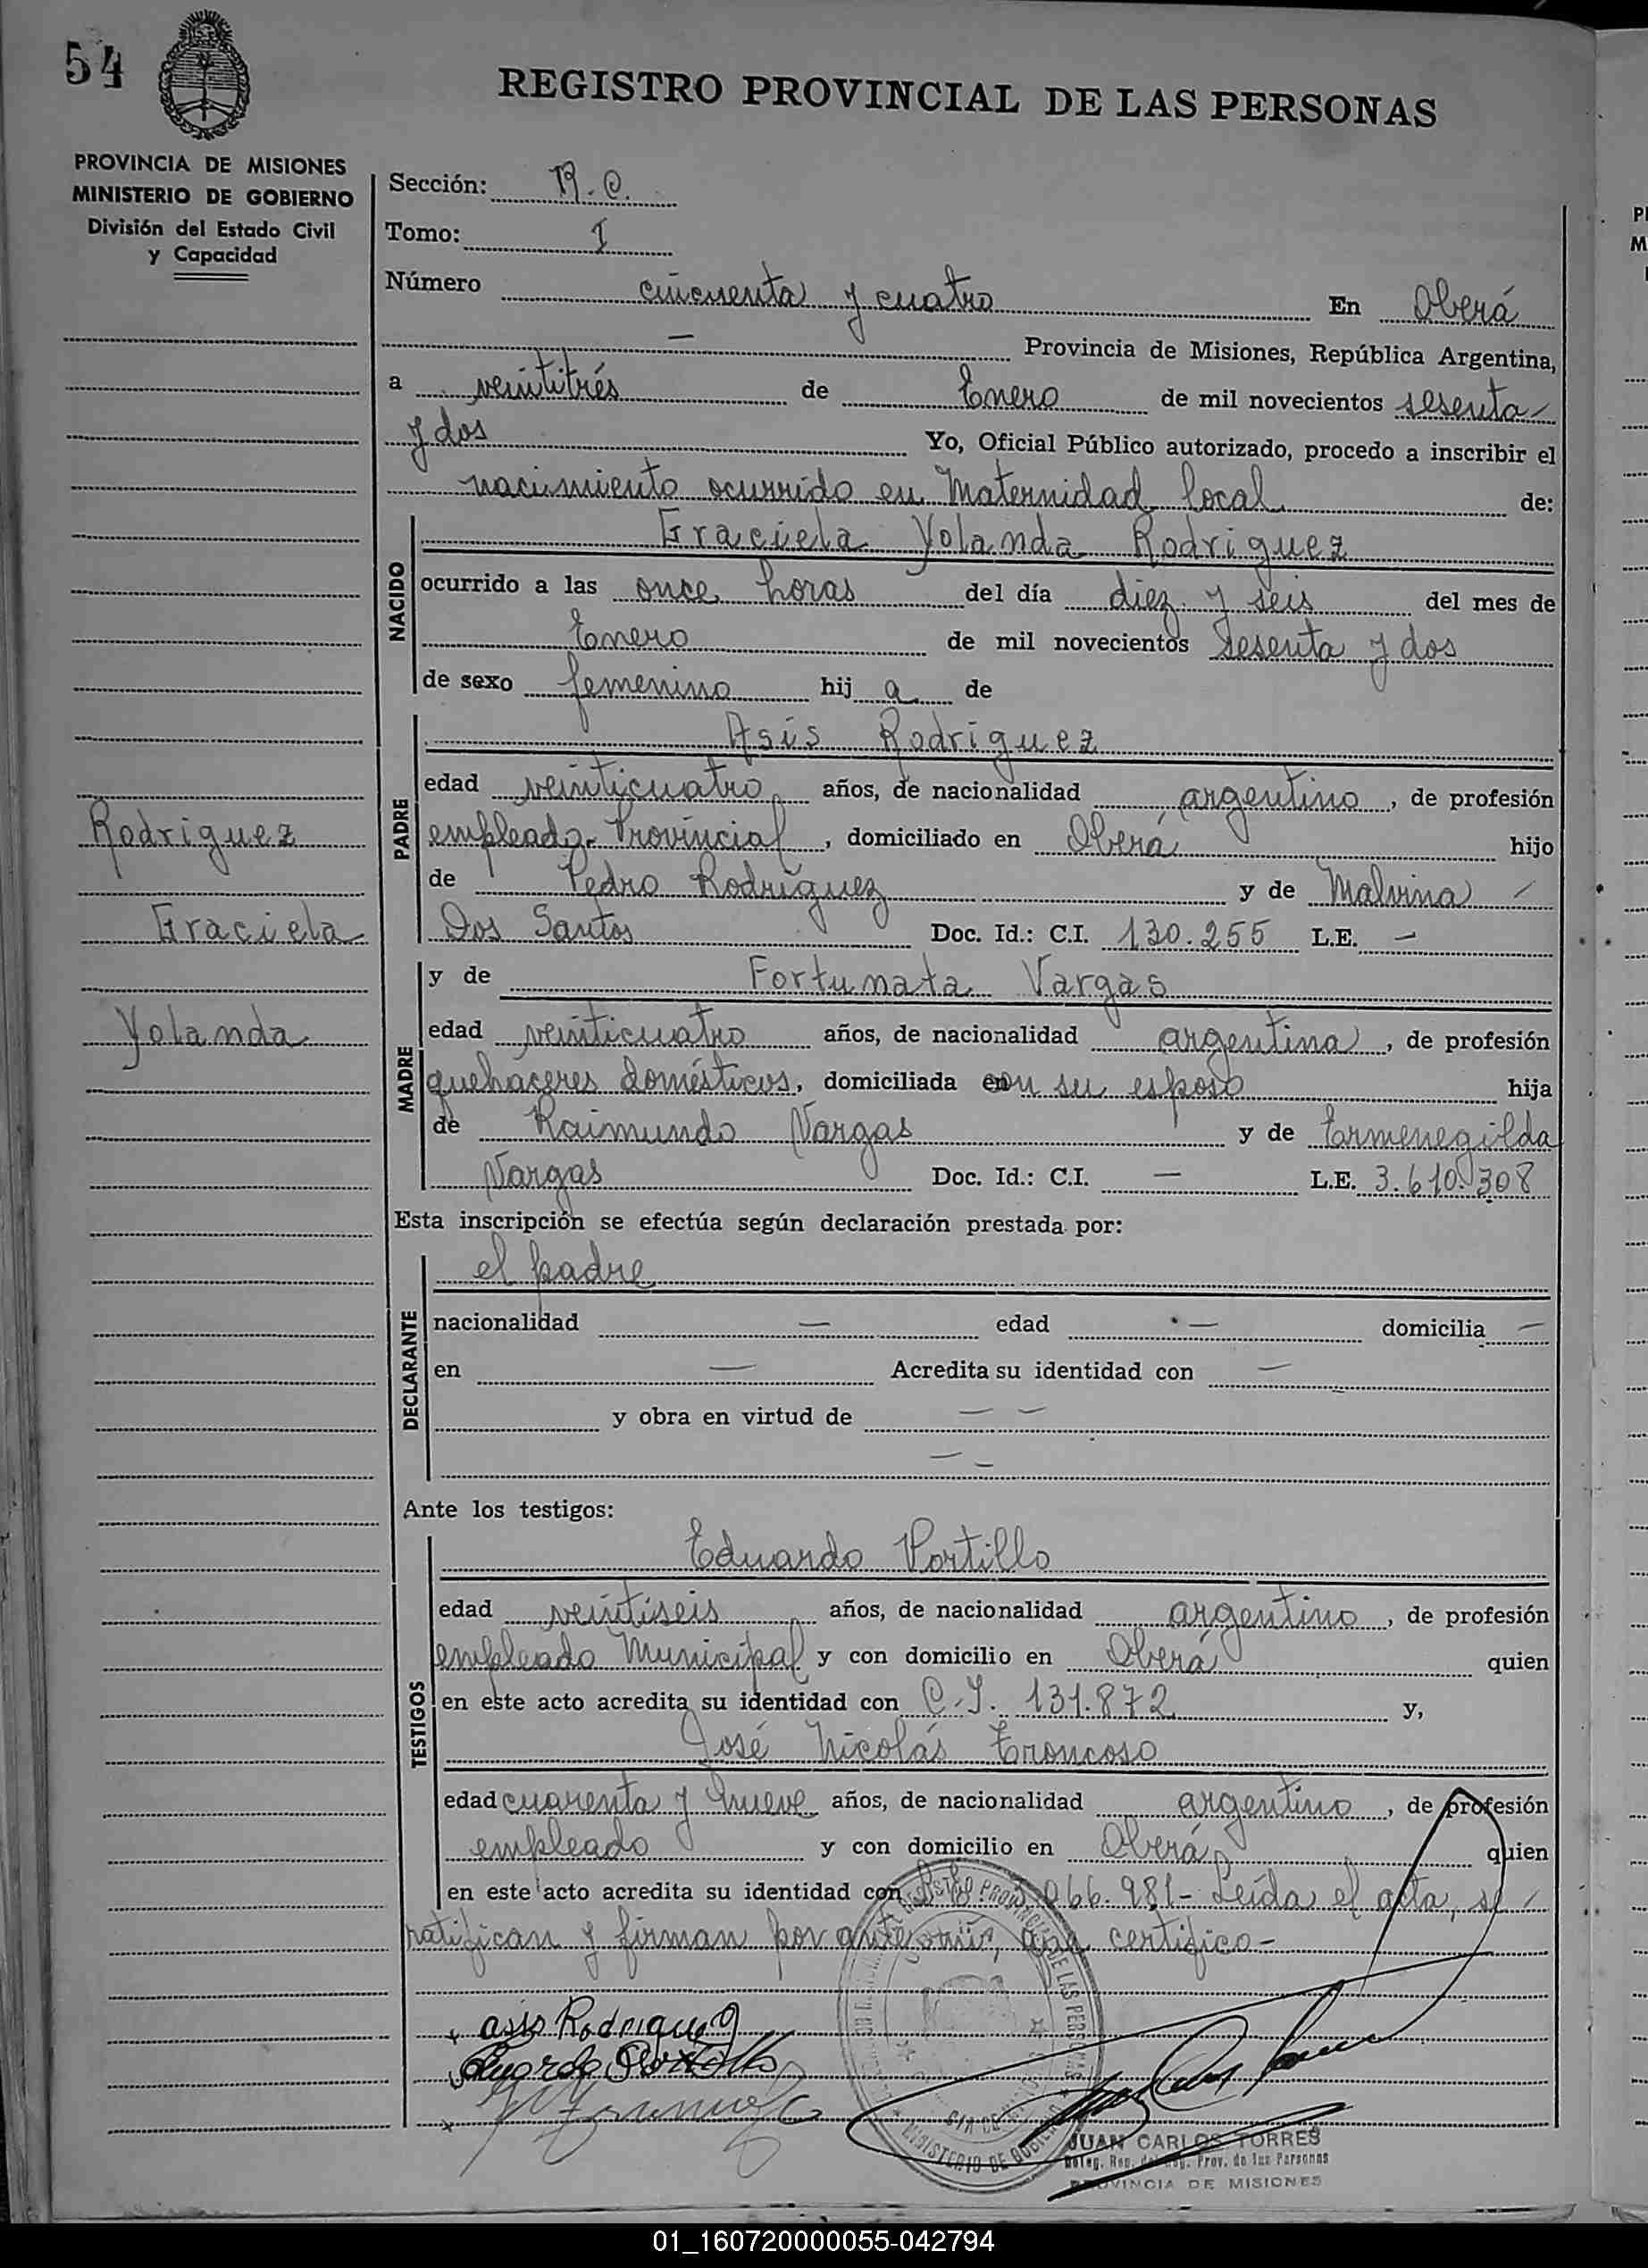 54
REGISTRO PROVINCIAL DE LAS PERSONAS
PROVINCIA DE MISIONES
MINISTERIO DE GOBIERNO
División del Estado Civil
y Capacidad
Sección: R.C.
Tomo: I
Número cincuenta y cuatro En Oberá
— Provincia de Misiones, República Argentina,
a veintitrés de Enero de mil novecientos sesenta
y dos Yo, Oficial Público autorizado, procedo a inscribir el
nacimiento ocurrido en Maternidad local de:
NACIDO
Graciela Yolanda Rodriguez
ocurrido a las once horas del día diez y seis del mes de
Enero de mil novecientos sesenta y dos
de sexo femenino hij a de
PADRE
Asis Rodriguez
edad veinticuatro años, de nacionalidad argentino, de profesión
empleado Provincial, domiciliado en Oberá hijo
de Pedro Rodríguez y de Malvina —
Dos Santos Doc. Id.: C.I. 130.255 L.E. —
Rodriguez
Graciela
Yolanda
MADRE
y de Fortunata Vargas
edad veinticuatro años, de nacionalidad argentina, de profesión
quehaceres domésticos, domiciliada con su esposo hija
de Raimundo Vargas y de Ermenegilda
Vargas Doc. Id.: C.I. — L.E. 3.610.308
Esta inscripción se efectúa según declaración prestada por:
DECLARANTE
el padre
nacionalidad — edad — domicilia —
en — Acredita su identidad con —
y obra en virtud de — —
— —
Ante los testigos:
TESTIGOS
Eduardo Portillo
edad veintiseis años, de nacionalidad argentino, de profesión
empleado Municipal y con domicilio en Oberá quien
en este acto acredita su identidad con C.I. 131.872 y,
José Nicolás Troncoso
edad cuarenta y nueve años, de nacionalidad argentino, de profesión
empleado y con domicilio en Oberá quien
en este acto acredita su identidad con 066.981- Leída el acta, se
ratifican y firman por ante mi, que certifico-
Asis Rodriguez
Eduardo Portillo
REGISTRO PROVINCIAL DE LAS PERSONAS
MINISTERIO DE GOBIERNO
JUAN CARLOS TORRES
Prov. de las Personas
PROVINCIA DE MISIONES
01_160720000055-042794